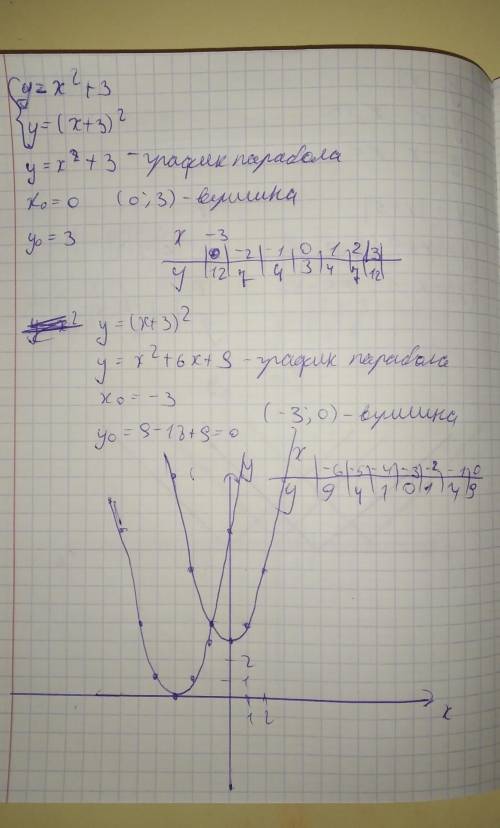 {y = x² + 3
{y = (x+3)²
y = x² + 3 - график парабола
x₀ = 0 (0; 3) - вершина
y₀ = 3
x -3 -2 -1 0 1 2 3
y 12 7 4 3 4 7 12
y = (x+3)²
y = x² + 6x + 9 - график парабола
x₀ = -3
(-3; 0) - вершина
y₀ = 9 - 18 + 9 = 0
x -6 -5 -4 -3 -2 -1 0
y 9 4 1 0 1 4 9
y
2
1
1 2
x